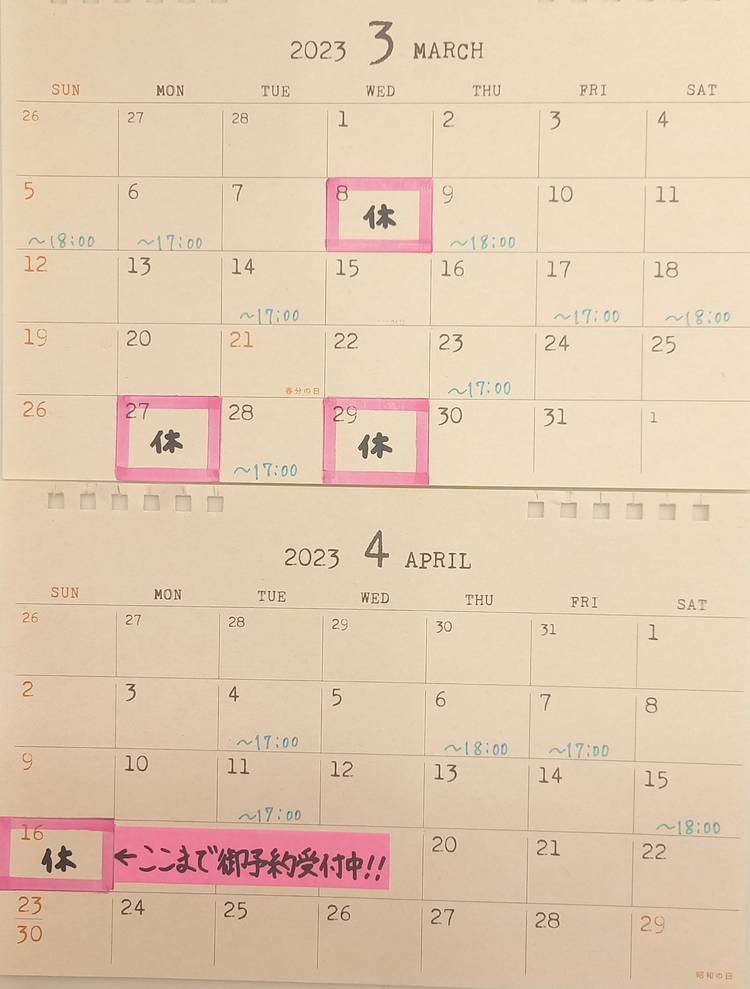 2023 3 MARCH
SUN MON TUE WED THU FRI SAT
26 27 28 1 2 3 4
5 6 7 8 9 10 11
休
~18:00 ~17:00 ~18:00
12 13 14 15 16 17 18
~17:00 ~17:00 ~18:00
19 20 21 22 23 24 25
春分の日 ~17:00
26 27 28 29 30 31 1
休 休
~17:00
2023 4 APRIL
SUN MON TUE WED THU FRI SAT
26 27 28 29 30 31 1
2 3 4 5 6 7 8
~17:00 ~18:00 ~17:00
9 10 11 12 13 14 15
~17:00 ~18:00
16 20 21 22
休 ←ここまで御予約受付中!!
23 24 25 26 27 28 29
30
昭和の日